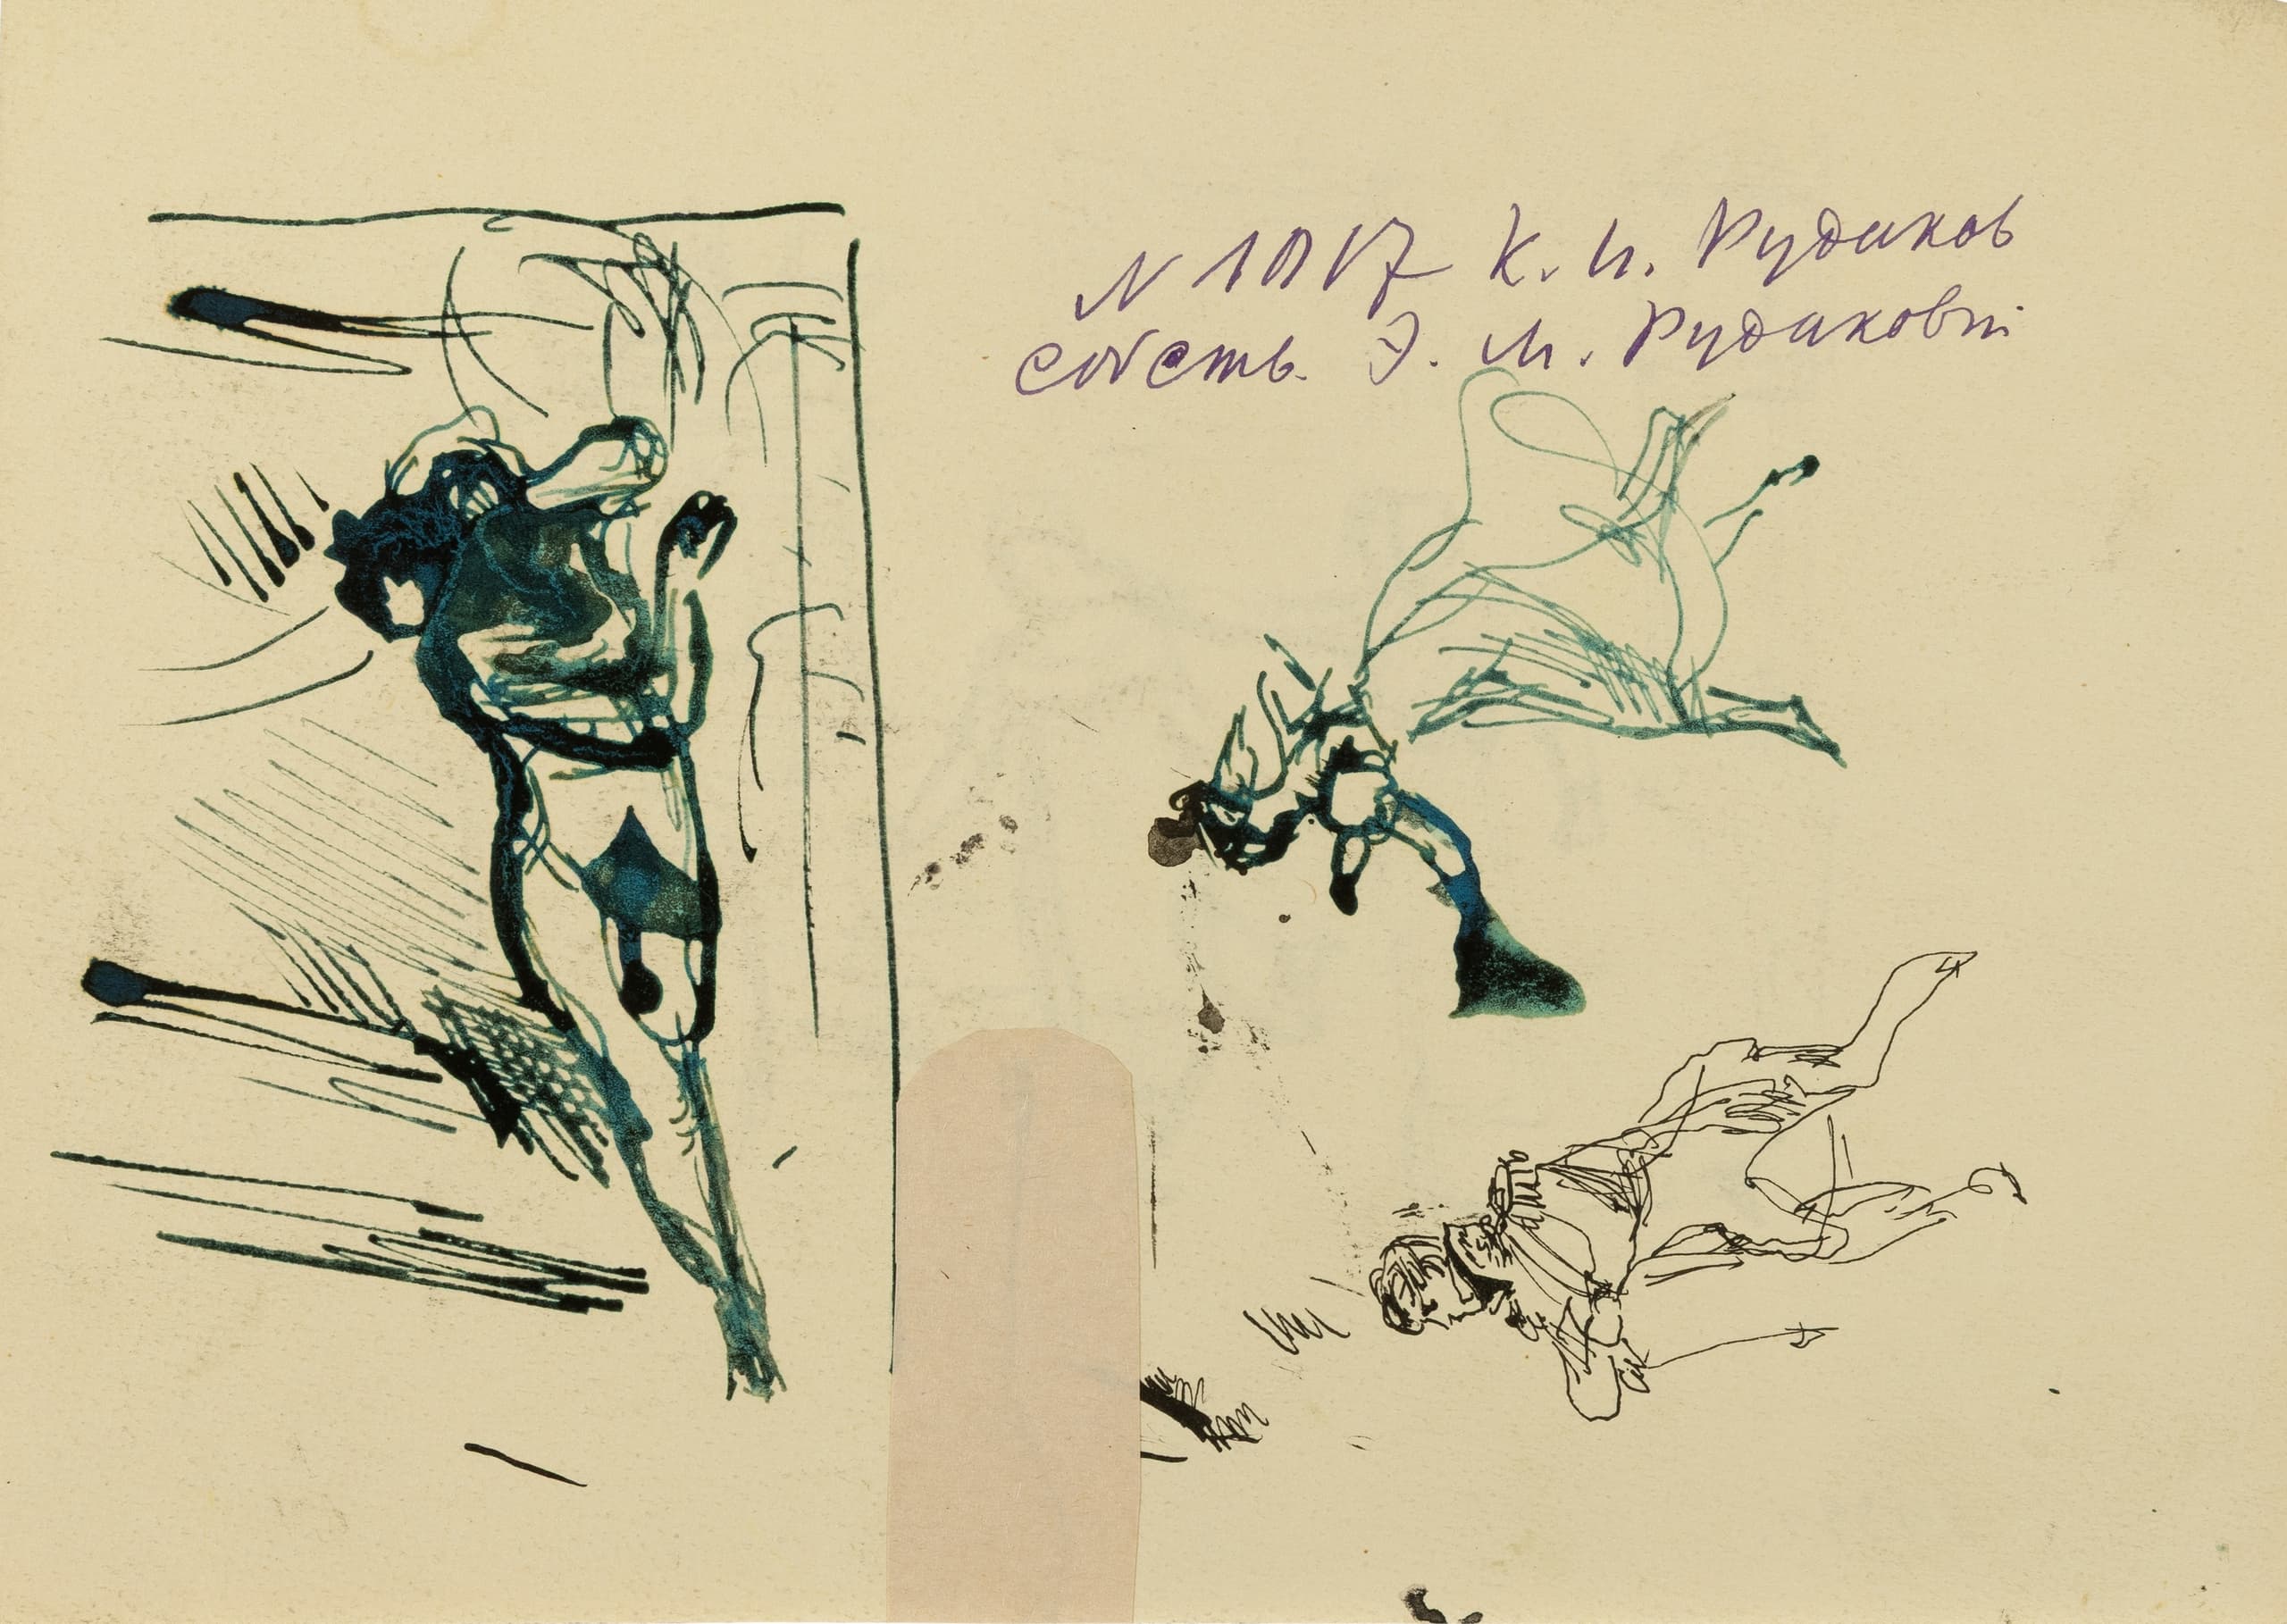 N 1017 К. И. Рудаков
собств. Э. М. Рудаковой